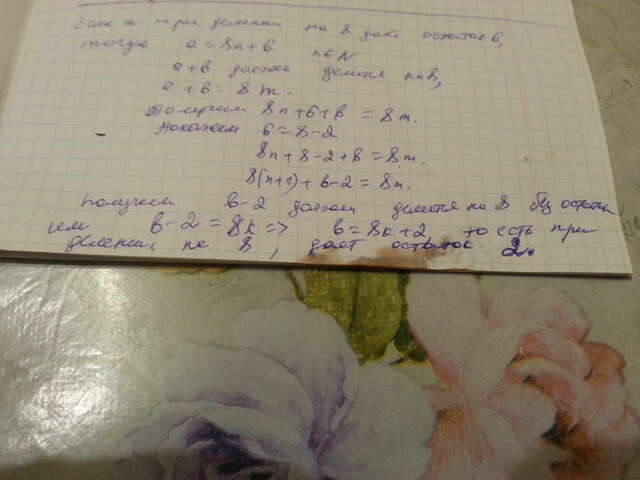 Если a при делении на 8 дает остаток 6,
тогда a = 8n+6 n∈N
a+b должен делится на 8,
a+b = 8m.
Получаем 8n+6+b = 8m.
Положим 6=8-2.
8n+8-2+b=8m.
8(n+1)+b-2=8m.
Получаем b-2 должен делится на 8 без остатка
или b-2=8k => b=8k+2, то есть при
делении на 8, дает остаток 2.